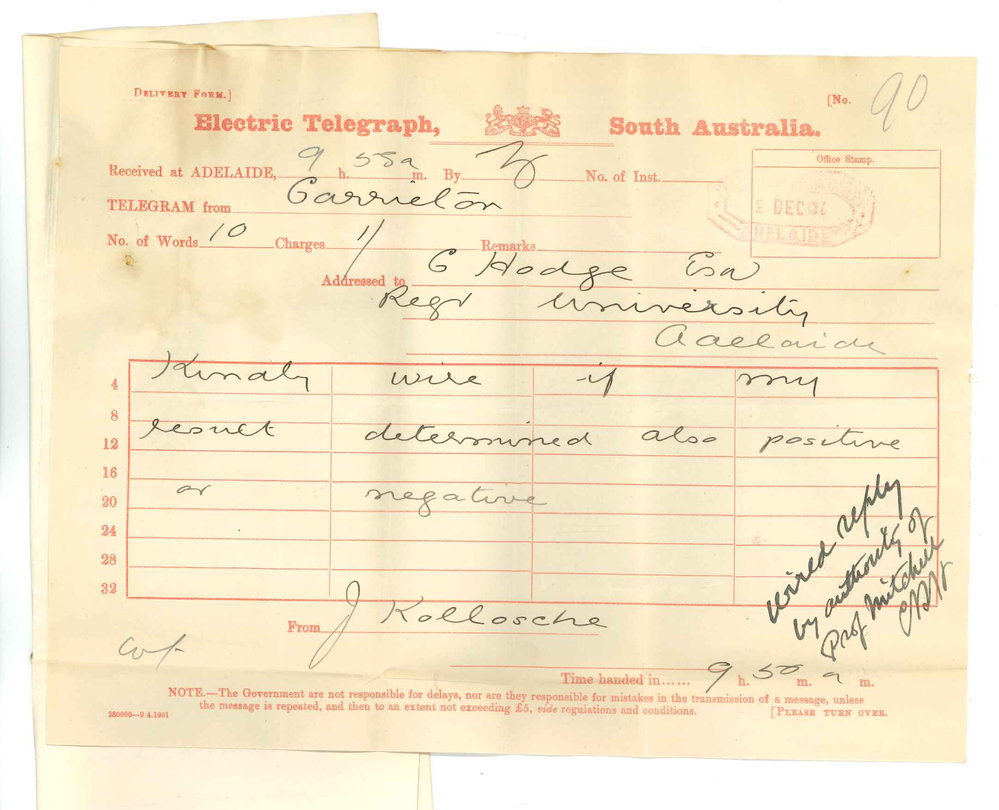 DELIVERY FORM.]
[No. 90
Electric Telegraph, South Australia.
Received at ADELAIDE, 9 h. 55 a m. By No. of Inst.
Office Stamp.
2 DEC 04
ADELAIDE
TELEGRAM from Carrieton
No. of Words 10 Charges 1/ Remarks
Addressed to C Hodge Esq
Regr University
Adelaide
4 Kindly wire if my
8
12 result determined also positive
16
20 or negative
24
28
32
Wired reply
by authority of
Prof Mitchell
CRH
From J Kollosche
Time handed in...... 9 h. 50 m. a m.
NOTE.—The Government are not responsible for delays, nor are they responsible for mistakes in the transmission of a message, unless
the message is repeated, and then to an extent not exceeding £5, vide regulations and conditions. [PLEASE TURN OVER.
250000—9.4.1901